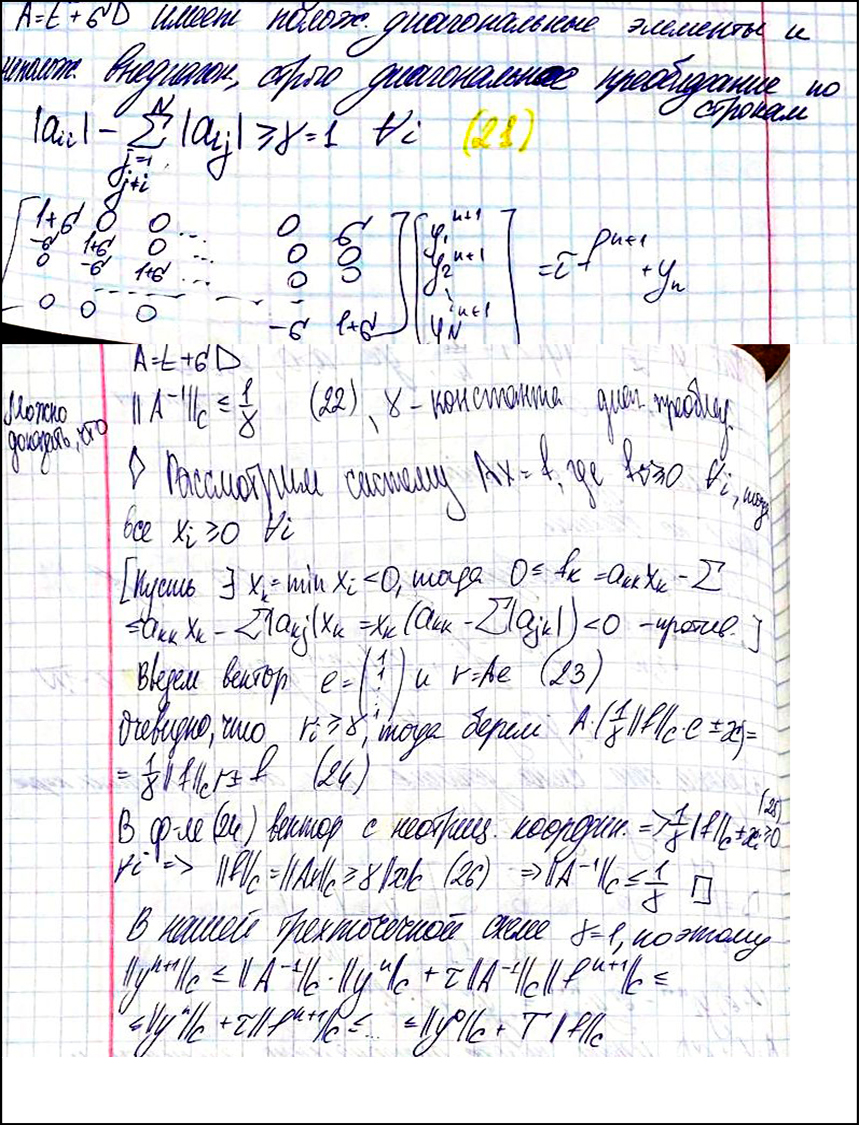 A=E+σD имеет полож. диагональные элементы и
неполож. внедиагон., строго диагональное преобладание по
строкам
|aᵢᵢ| - Σ |aᵢⱼ| ≥ γ = 1 ∀i (21)
N
j=1
j≠i
[1+σ 0 0 ... 0 σ] [y₁ⁿ⁺¹]
-σ 1+σ 0 ... 0 0 y₂ⁿ⁺¹ = τ fⁿ⁺¹ + yₙ
0 -σ 1+σ ... 0 0
0 0 0 -σ 1+σ y_Nⁿ⁺¹
A=E+σD
Можно
доказать, что
‖A⁻¹‖_C ≤ 1/γ (22), γ - константа диаг. преоблад.
◊ Рассмотрим систему Ax=f, где fᵢ≥0 ∀i, тогда
все xᵢ ≥0 ∀i
[Пусть ∃ xₖ=min xᵢ <0, тогда 0≤ fₖ =aₖₖxₖ - Σ
≤aₖₖxₖ - Σ|aₖⱼ|xₖ =xₖ(aₖₖ - Σ|aⱼₖ|) <0 -против.]
Введем вектор e=(1 1 ⋮ 1) и r=Ae (23)
Очевидно, что rᵢ≥γ, тогда берем A·(1/γ‖f‖_C·e ± x)=
= 1/γ‖f‖_C r± f (24)
В ф-ле (24) вектор с неотриц. координ. => 1/γ‖f‖_C ± xᵢ≥0 (25)
∀i => ‖f‖_C=‖Ax‖_C ≥ γ‖x‖_C (26) => ‖A⁻¹‖_C ≤ 1/γ □
В нашей трехточечной схеме γ=1, поэтому
‖yⁿ⁺¹‖_C ≤ ‖A⁻¹‖_C·‖yⁿ‖_C + τ‖A⁻¹‖_C‖fⁿ⁺¹‖_C ≤
≤‖yⁿ‖_C + τ‖fⁿ⁺¹‖_C ≤... ≤‖y⁰‖_C + T‖f‖_C